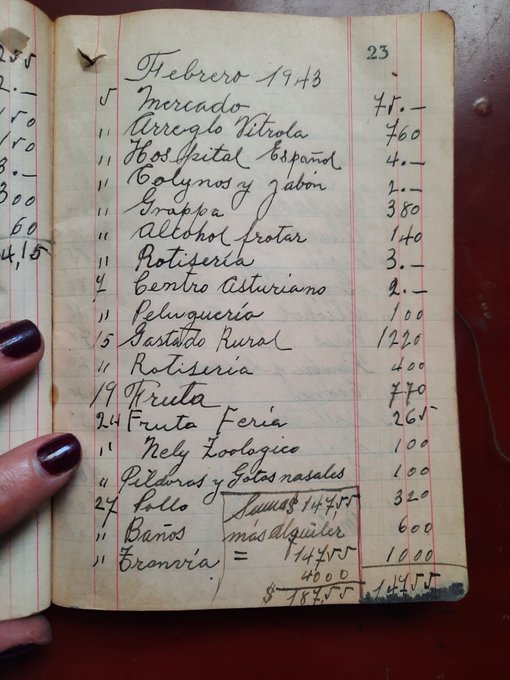 235
2.—
150
150
3.—
300
60
4,15
23
Febrero 1943
5 Mercado 75.—
" Arreglo Vitrola 760
" Hospital Español 4.—
" Colynos y jabón 2.—
" Grappa 380
" Alcohol frotar 140
" Rotisería 3.—
7 Centro Asturiano 2.—
" Peluquería 100
15 Gastado Rural 1220
" Rotisería 400
19 Fruta 770
24 Fruta Feria 265
" Nely Zoologico 100
" Píldoras y Gotas nasales 100
27 Pollo 320
" Baños 600
" Tranvía 1000
147.55
Suma $ 147,55
más alquiler
= 147.55
4000
$ 187,55